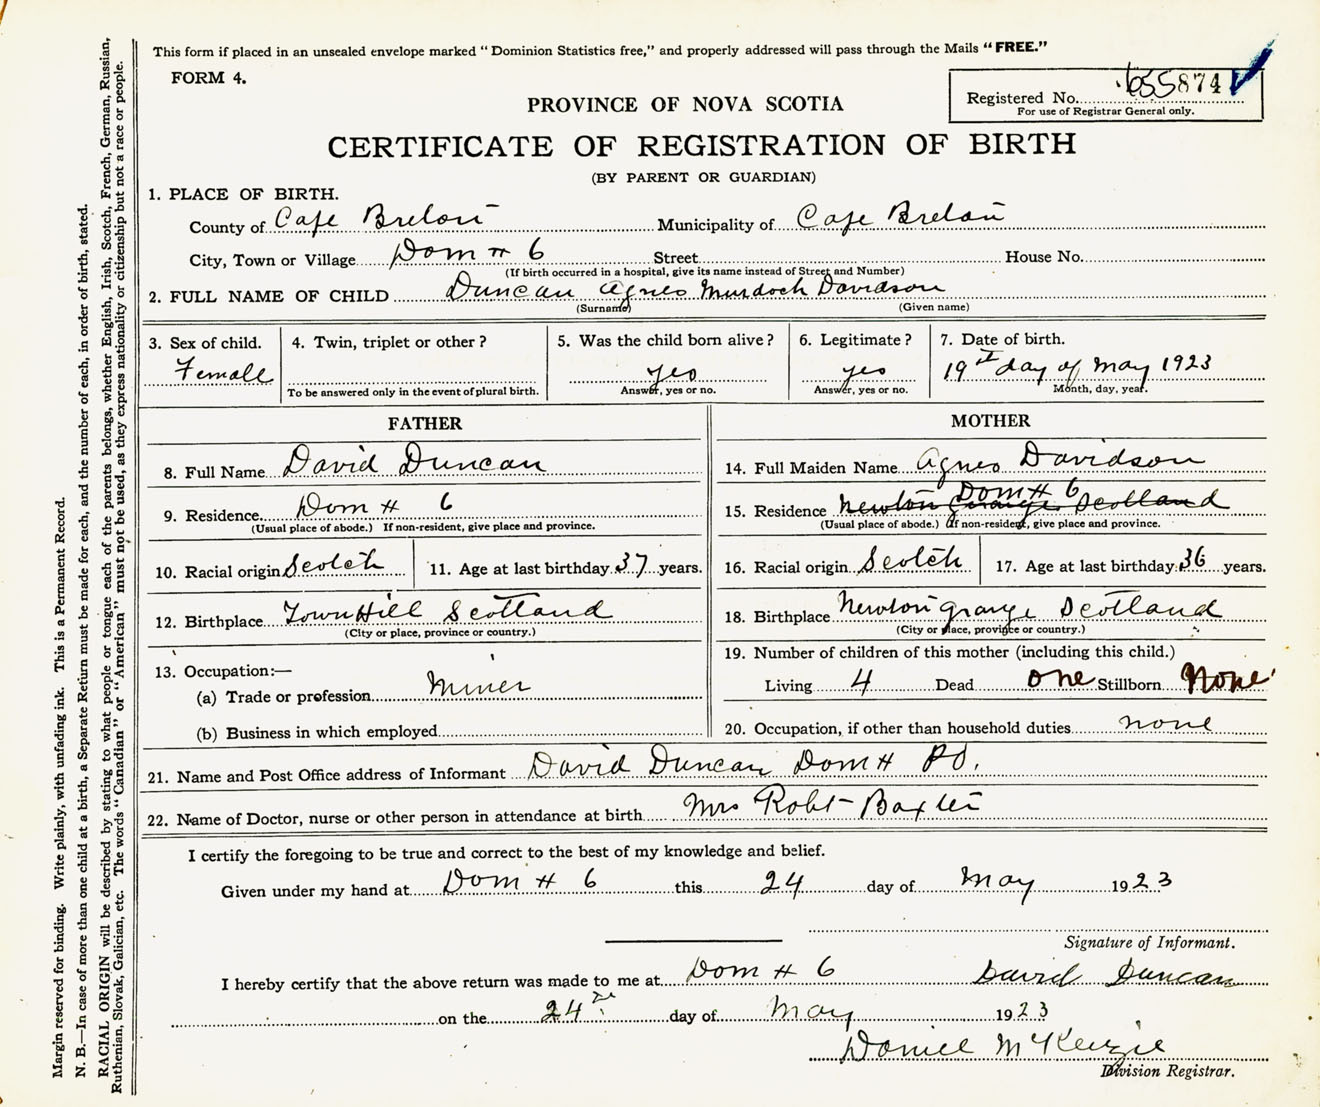 This form if placed in an unsealed envelope marked "Dominion Statistics free," and properly addressed will pass through the Mails "FREE."
FORM 4.
Registered No. 655874
For use of Registrar General only.
PROVINCE OF NOVA SCOTIA
CERTIFICATE OF REGISTRATION OF BIRTH
(BY PARENT OR GUARDIAN)
1. PLACE OF BIRTH.
County of Cape Breton Municipality of Cape Breton
City, Town or Village Dom # 6 Street House No.
(If birth occurred in a hospital, give its name instead of Street and Number)
2. FULL NAME OF CHILD Duncan Agnes Murdoch Davidson
(Surname) (Given name)
3. Sex of child. 4. Twin, triplet or other? 5. Was the child born alive? 6. Legitimate? 7. Date of birth.
Female yes yes 19th day of May 1923
To be answered only in the event of plural birth. Answer, yes or no. Answer, yes or no. Month, day, year.
FATHER
8. Full Name David Duncan
9. Residence Dom # 6
(Usual place of abode.) If non-resident, give place and province.
10. Racial origin Scotch 11. Age at last birthday 37 years.
12. Birthplace TownHill Scotland
(City or place, province or country.)
13. Occupation:—
(a) Trade or profession Miner
(b) Business in which employed
MOTHER
14. Full Maiden Name Agnes Davidson
Dom # 6
15. Residence Newton Grange Scotland
(Usual place of abode.) If non-resident, give place and province.
16. Racial origin Scotch 17. Age at last birthday 36 years.
18. Birthplace Newton grange Scotland
(City or place, province or country.)
19. Number of children of this mother (including this child.)
Living 4 Dead one Stillborn None
20. Occupation, if other than household duties none
21. Name and Post Office address of Informant David Duncan Dom # PO.
22. Name of Doctor, nurse or other person in attendance at birth Mrs Robt Baxter
I certify the foregoing to be true and correct to the best of my knowledge and belief.
Given under my hand at Dom # 6 this 24 day of May 1923
Signature of Informant.
I hereby certify that the above return was made to me at Dom # 6 David Duncan
on the 24th day of May 1923
Daniel McKenzie
Division Registrar.
Margin reserved for binding. Write plainly, with unfading ink. This is a Permanent Record.
N. B.—In case of more than one child at a birth, a Separate Return must be made for each, and the number of each, in order of birth, stated.
RACIAL ORIGIN will be described by stating to what people or tongue each of the parents belongs, whether English, Irish, Scotch, French, German, Russian,
Ruthenian, Slovak, Galician, etc. The words "Canadian" or "American" must not be used, as they express nationality or citizenship but not a race or people.